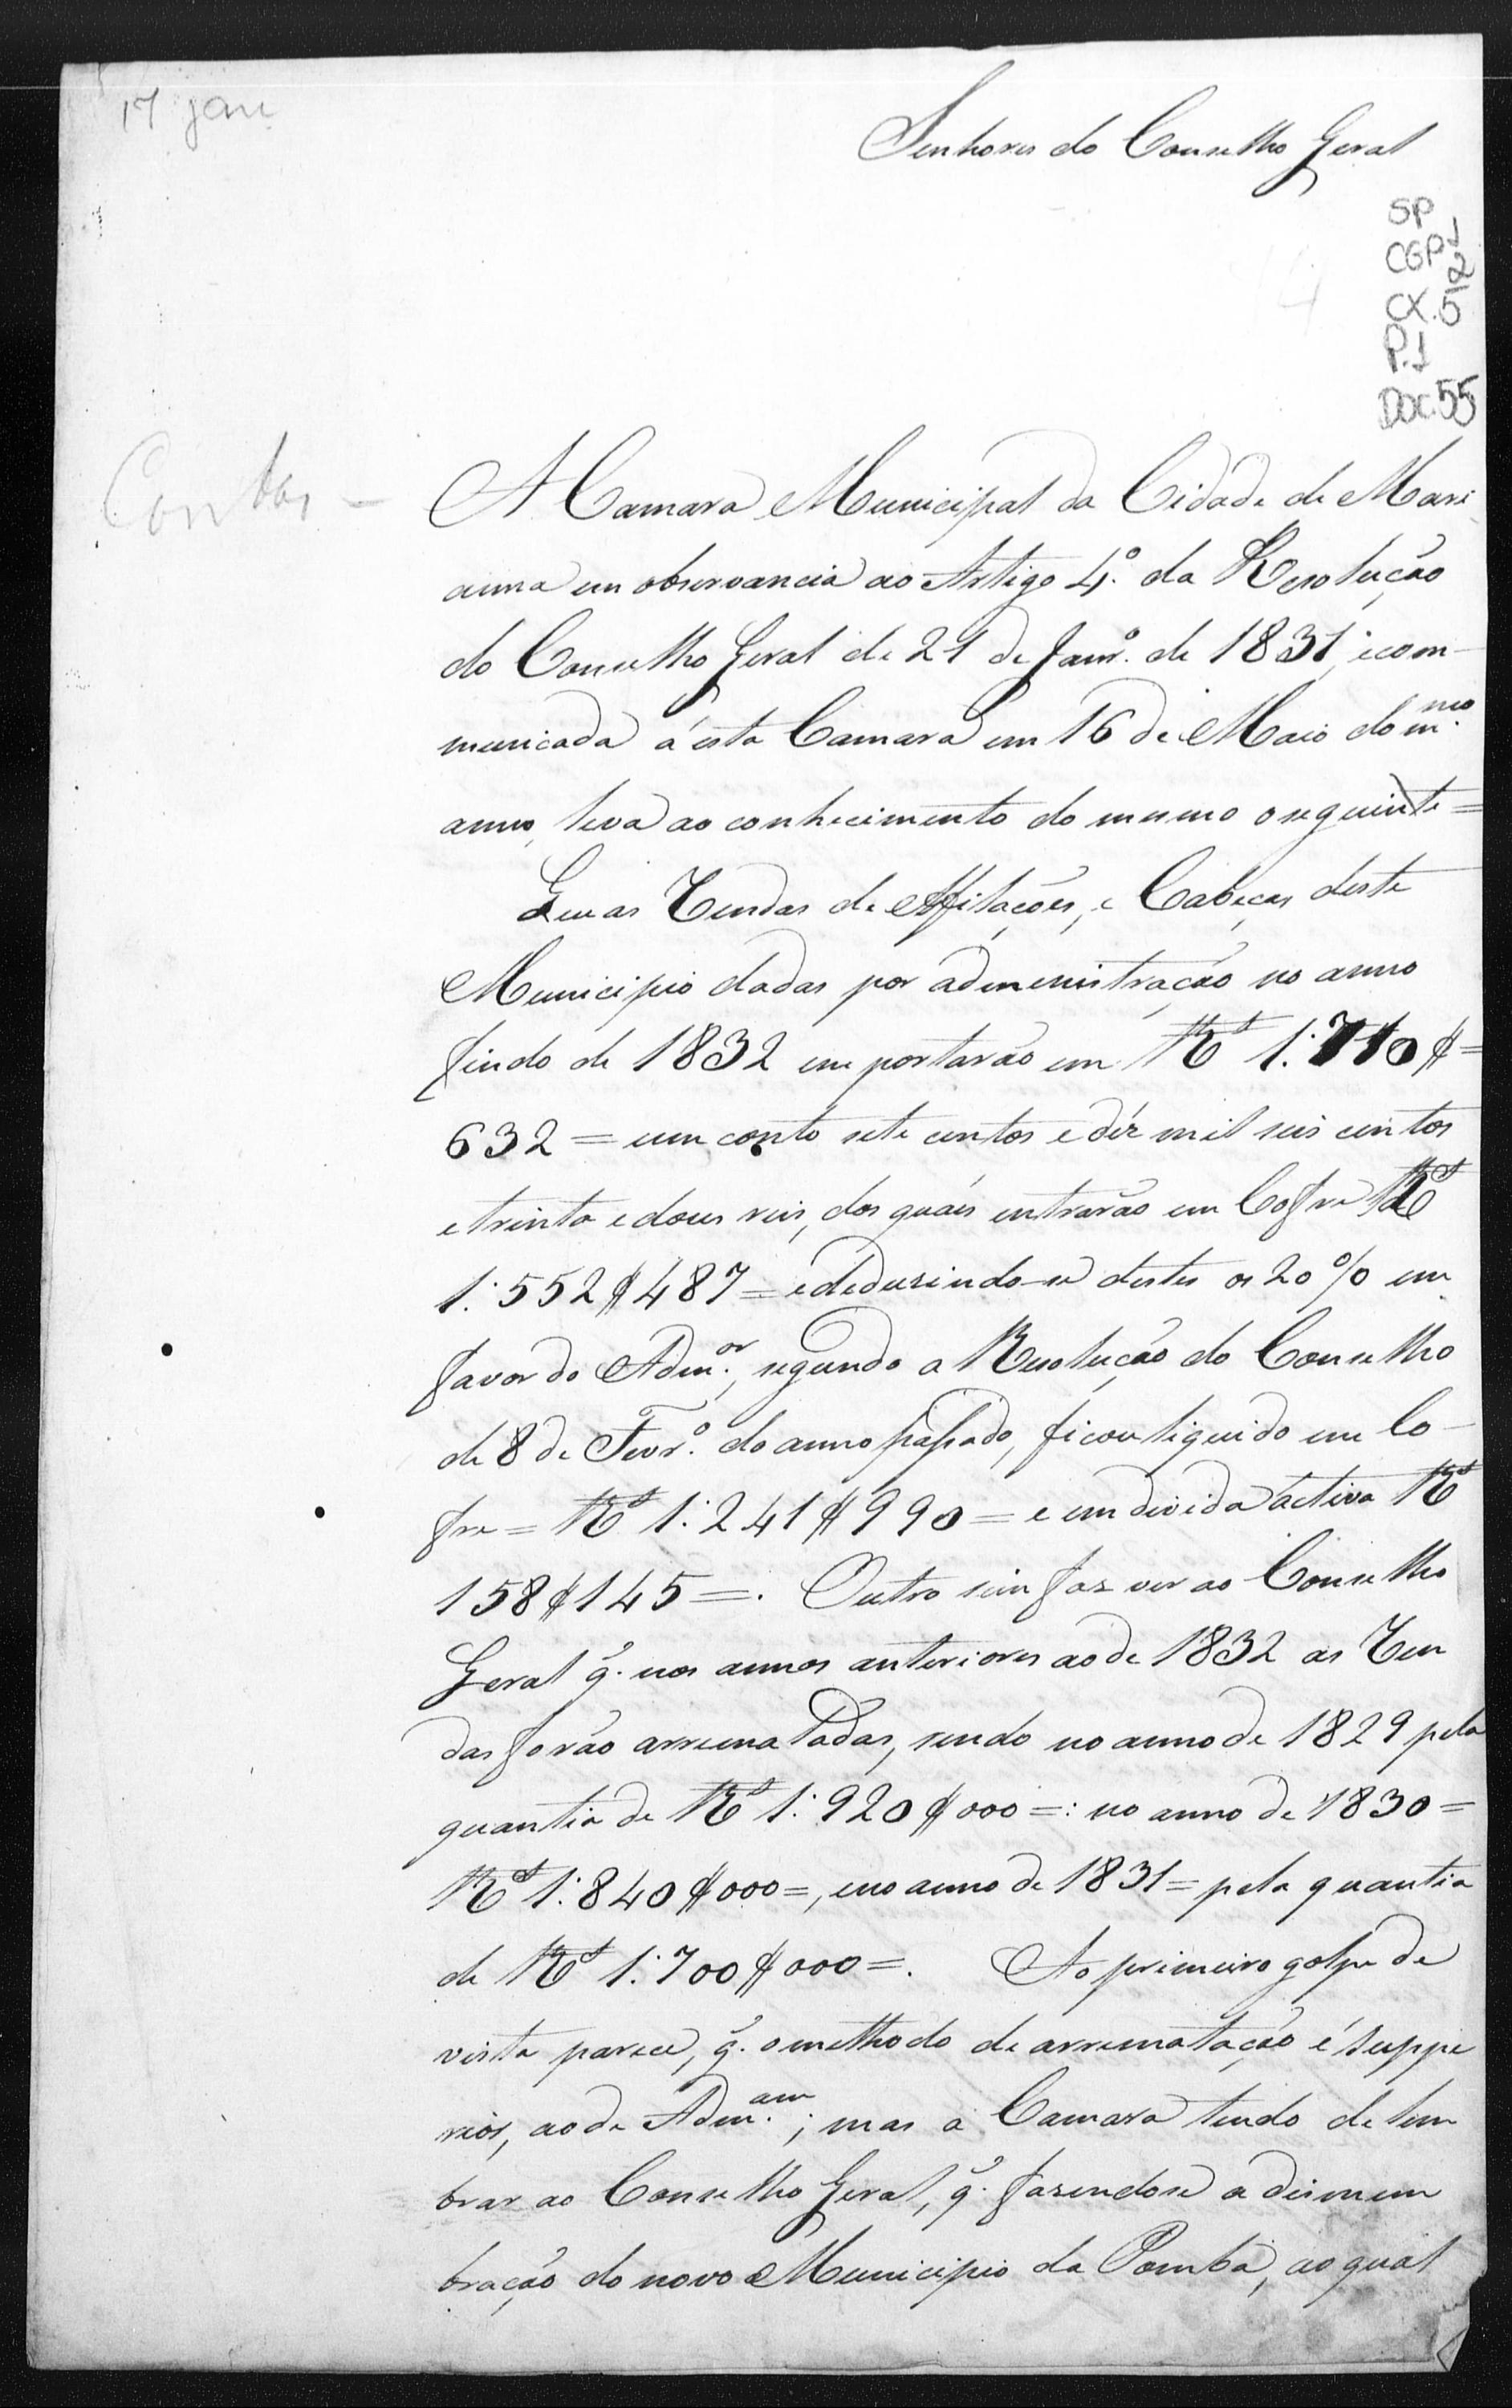 17 jan
Senhores do Conselho Geral
SP
CGP 1/2
CX. 5
P. 1
DOC. 55
Contas =
A Camara Municipal da Cidade de Mari
anna em observancia ao Artigo 4.º da Resolução
do Conselho Geral de 21 de Janr.º de 1831, e com-
municada á esta Camara em 16 de Maio do m.mo
anno, leva ao conhecimento do mesmo o seguinte =
Que as Rendas de Afilações, e Cabeças deste
Municipio dadas por administração no anno
findo de 1832 emportarão em Rs 1:710$=
632 = um conto sete centos e déz mil seis centos
e trinta e dous reis, dos quáis entrarão em Cofre Rs
1:552$487 = e dedusindo-se destes os 20% em
favor do Adm.or, segundo a Resolução do Conselho
de 8 de Fevr.º do anno passado, ficou liquido em Co-
fre = Rs 1:241$990 = e em divida activa Rs
158$145 =. Outro sim faz ver ao Conselho
Geral q. nos annos anteriores ao de 1832 as Ren
das forão arrematadas, sendo no anno de 1829 pela
quantia de Rs 1:920$000 =: no anno de 1830 =
Rs 1:840$000 =, e no anno de 1831 = pela quantia
de Rs 1:700$000 =. Ao primeiro golpe de
vista parece, q. o methodo de arrematação é suppe
rior, ao de Adm.am; mas a Camara tendo de lem
brar ao Conselho Geral, q. fasendose a dismem
bração do novo Municipio da Pomba, ao qual